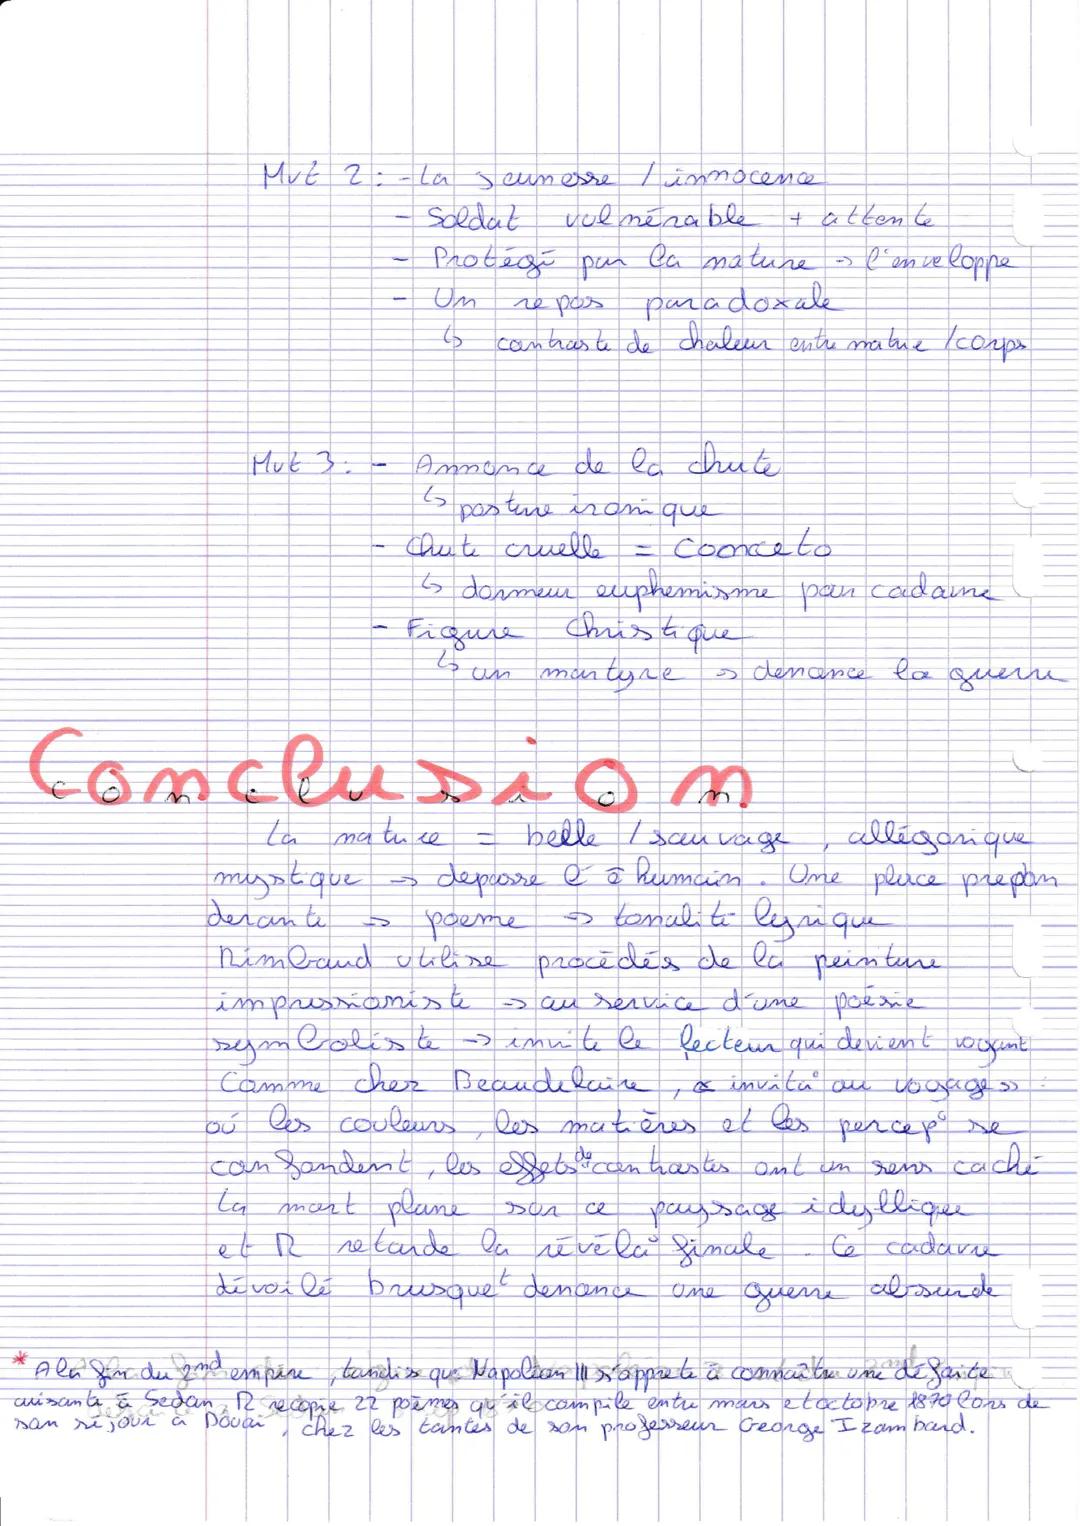 Mvt 2 : - La jeunesse / innocence
- Soldat vulnérable + attente
- Protégé par la nature → l'enveloppe
- Un repos paradoxale
↳ contraste de chaleur entre nature / corps
Mvt 3 : - Annonce de la chute
↳ posture ironique
- Chute cruelle = Concceto
↳ dormeur euphemisme pour cadavre
- Figure Christique
↳ un martyre → denonce la guerre
Conclusion
La nature = belle / sauvage, allégorique
mystique → depasse l'ê humain. Une place prépon
derante → poeme → tonalité lyrique
Rimbaud utilise procédés de la peinture
impressioniste → au service d'une poésie
symboliste → invite le lecteur qui devient voyant
Comme chez Beaudelaire, « invit° au voyage » :
où les couleurs, les matières et les percep° se
confondent, les effets de contrastes ont un sens caché
La mort plane sur ce paysage idyllique
et R retarde la révéla° finale. Ce cadavre
dévoilé brusquet denonce une guerre absurde
* A la fin du 2nd empire, tandis que Napoléon III s'apprete à connaître une défaite
cuisante à Sedan, R recopie 22 poèmes qu'il compile entre mars et octobre 1870 lors de
son séjour à Douai, chez les tantes de son professeur George Izambard.